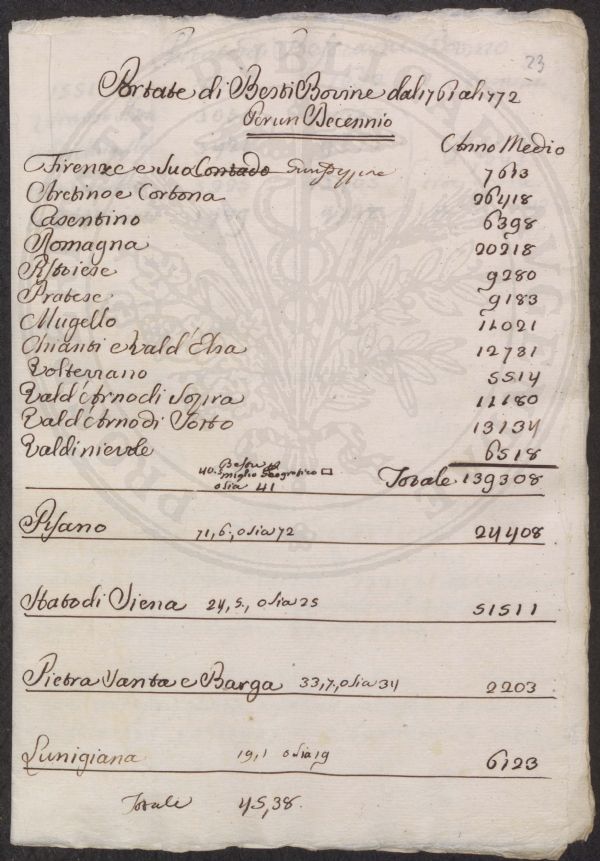 23
Portate di Besti Bovine dal 1761 al 1772
Per un Decennio
Anno Medio
Firenze e suo Contado 7613
Aretino e Cortona 26418
Casentino 6398
Romagna 20218
Pistoiese 9280
Pratese 9183
Mugello 11021
Chianti e Vald'Elsa 12731
Volterrano 5514
Vald'Arno di Sopra 11180
Vald'Arno di Sotto 13134
Valdinievole 6518
40. miglio Geografico □ Totale 139308
o sia 41
Pisano 71,6, o sia 72 24408
Stato di Siena 24,5, o sia 25 51511
Pietra Santa e Barga 33,7, o sia 34 2203
Lunigiana 19,1 o sia 19 6123
Totale 45,38.